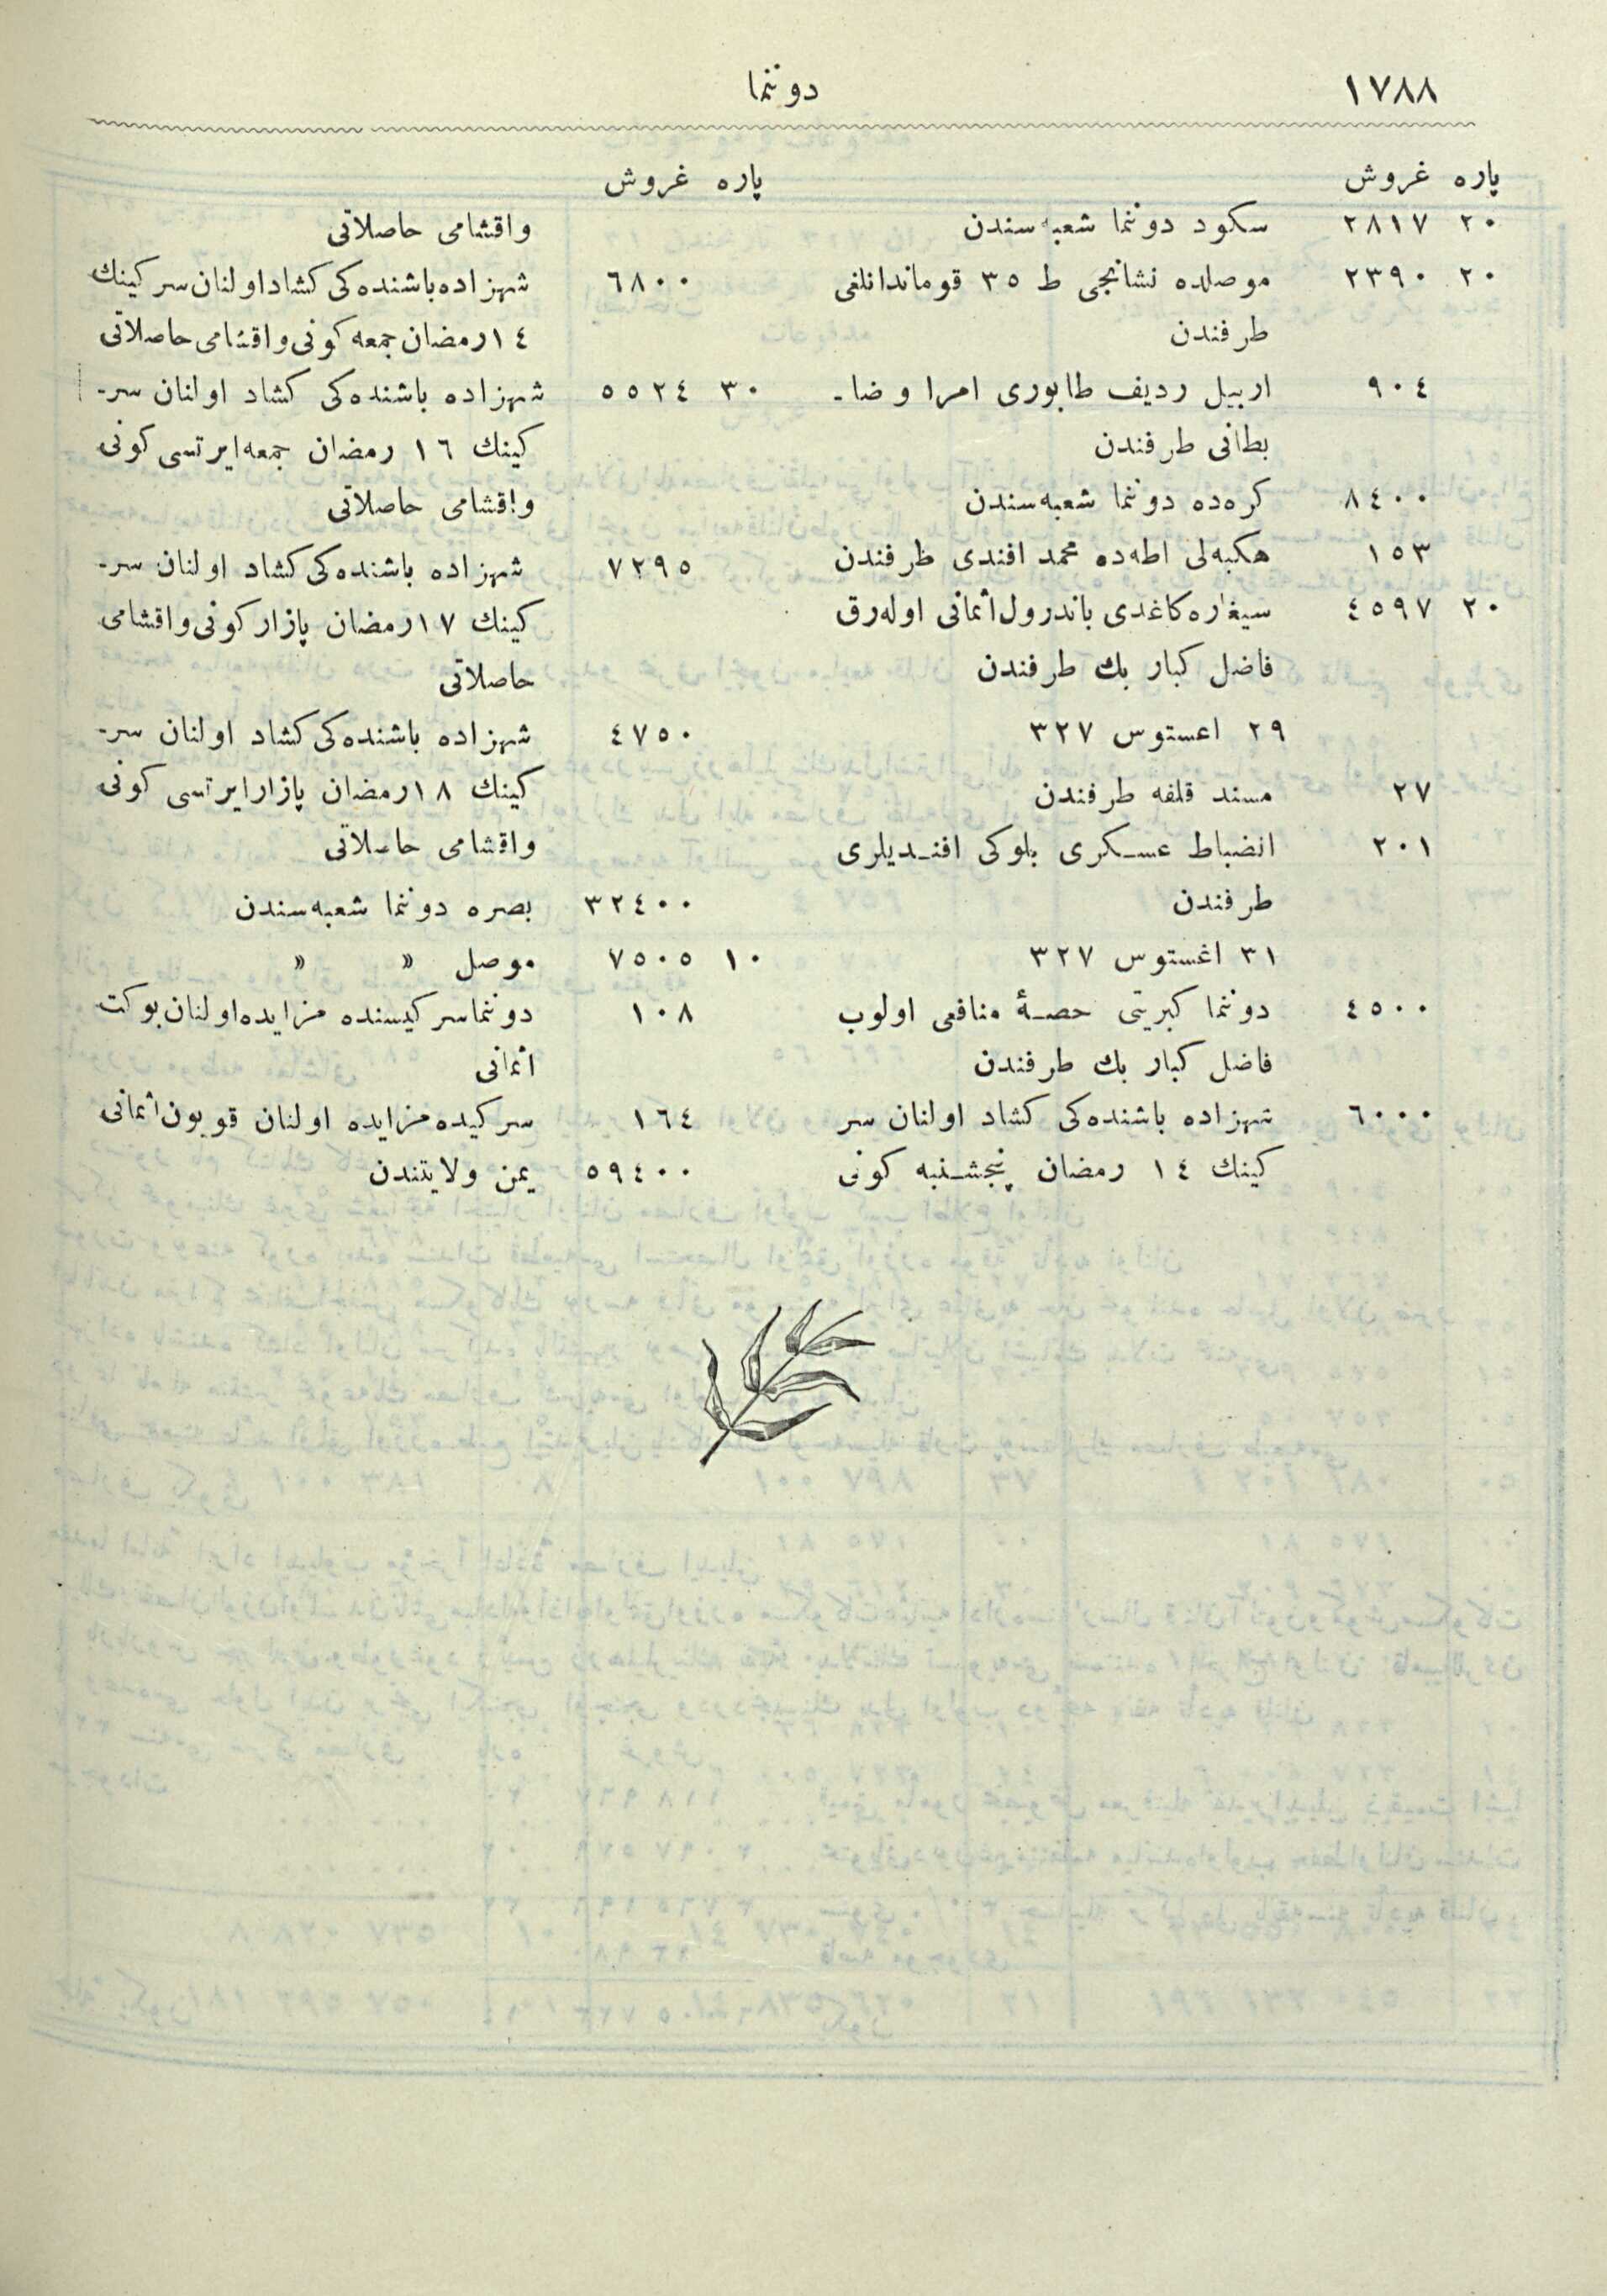 ١٧٨٨
دوننما
پاره غروش
٢٠ ٢٨١٧ سكود دوننما شعبه‌سندن
٢٠ ٢٣٩٠ موصلده نشانجی ط ٣٥ قوماندانلغی
طرفندن
٩٠٤ اربیل ردیف طابوری امرا و ضا-
بطانی طرفندن
٨٤٠٠ كره‌ده دوننما شعبه‌سندن
١٥٣ هكبه‌لی اطه‌ده محمد افندی طرفندن
٢٠ ٤٥٩٧ سیغاره‌كاغدی باندرول اثمانی اوله‌رق
فاضل كبار بك طرفندن
٢٩ اعستوس ٣٢٧
٢٧ مسند قلفه طرفندن
٢٠١ انضباط عسكری بلوكی افندیلری
طرفندن
٣١ اغستوس ٣٢٧
٤٥٠٠ دوننما كبریتی حصۀ منافعی اولوب
فاضل كبار بك طرفندن
٦٠٠٠ شهزاده باشنده‌كی كشاد اولنان سر
كینك ١٤ رمضان پنجشنبه كونی
پاره غروش
واقشامی حاصلاتی
٦٨٠٠ شهزاده‌باشنده‌كی كشاد اولنان سركینك
١٤ رمضان جمعه كونی واقشامی حاصلاتی
٣٠ ٥٥٢٤ شهزاده باشنده‌كی كشاد اولنان سر-
كینك ١٦ رمضان جمعه‌ایرتسی كونی
واقشامی حاصلاتی
٧٢٩٥ شهزاده باشنده‌كی كشاد اولنان سر-
كینك ١٧ رمضان پازار كونی واقشامی
حاصلاتی
٤٧٥٠ شهزاده باشنده‌كی كشاد اولنان سر-
كینك ١٨ رمضان پازارایرتسی كونی
واقشامی حاصلاتی
٣٢٤٠٠ بصره دوننما شعبه‌سندن
١٠ ٧٥٠٥ موصل » »
١٠٨ دوننما سركیسنده مزایده اولنان بوكت
اثمانی
١٦٤ سركیده مزایده اولنان قویون اثمانی
٥٩٤٠٠ یمن ولایتندن